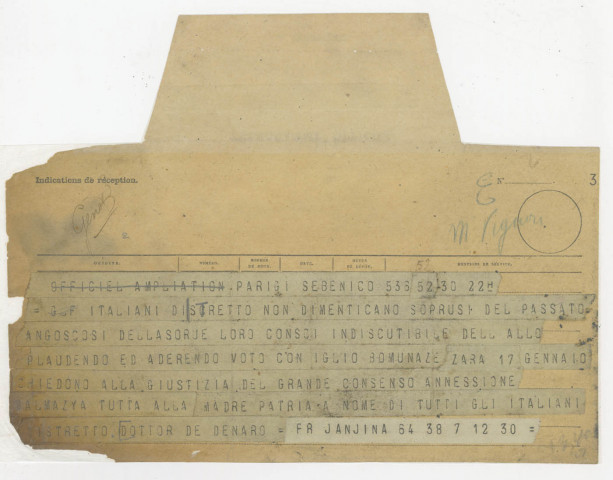 Indications de réception.
N°
3
OFFICIEL AMPLIATION PARIGI SEBENICO 536 52 30 22H
= GLF ITALIANI DISTRETTO NON DIMENTICANO SOPRUSI DEL PASSATO
ANGOSCOSI DELLASORJE LORO CONSCI INDISCUTIBILE DELL ALLO
PLAUDENDO ED ADERENDO VOTO CON IGLIO BOMUNAZE ZARA 17 GENNAIO
HIEDONO ALLA GIUSTIZIA DEL GRANDE CONSENSO ANNESSIONE
ALMAZYA TUTTA ALLA MADRE PATRIA A NOME DI TUTTI GLI ITALIANI
DISTRETTO DOTTOR DE DENARO = FR JANJINA 64 38 7 12 30 =